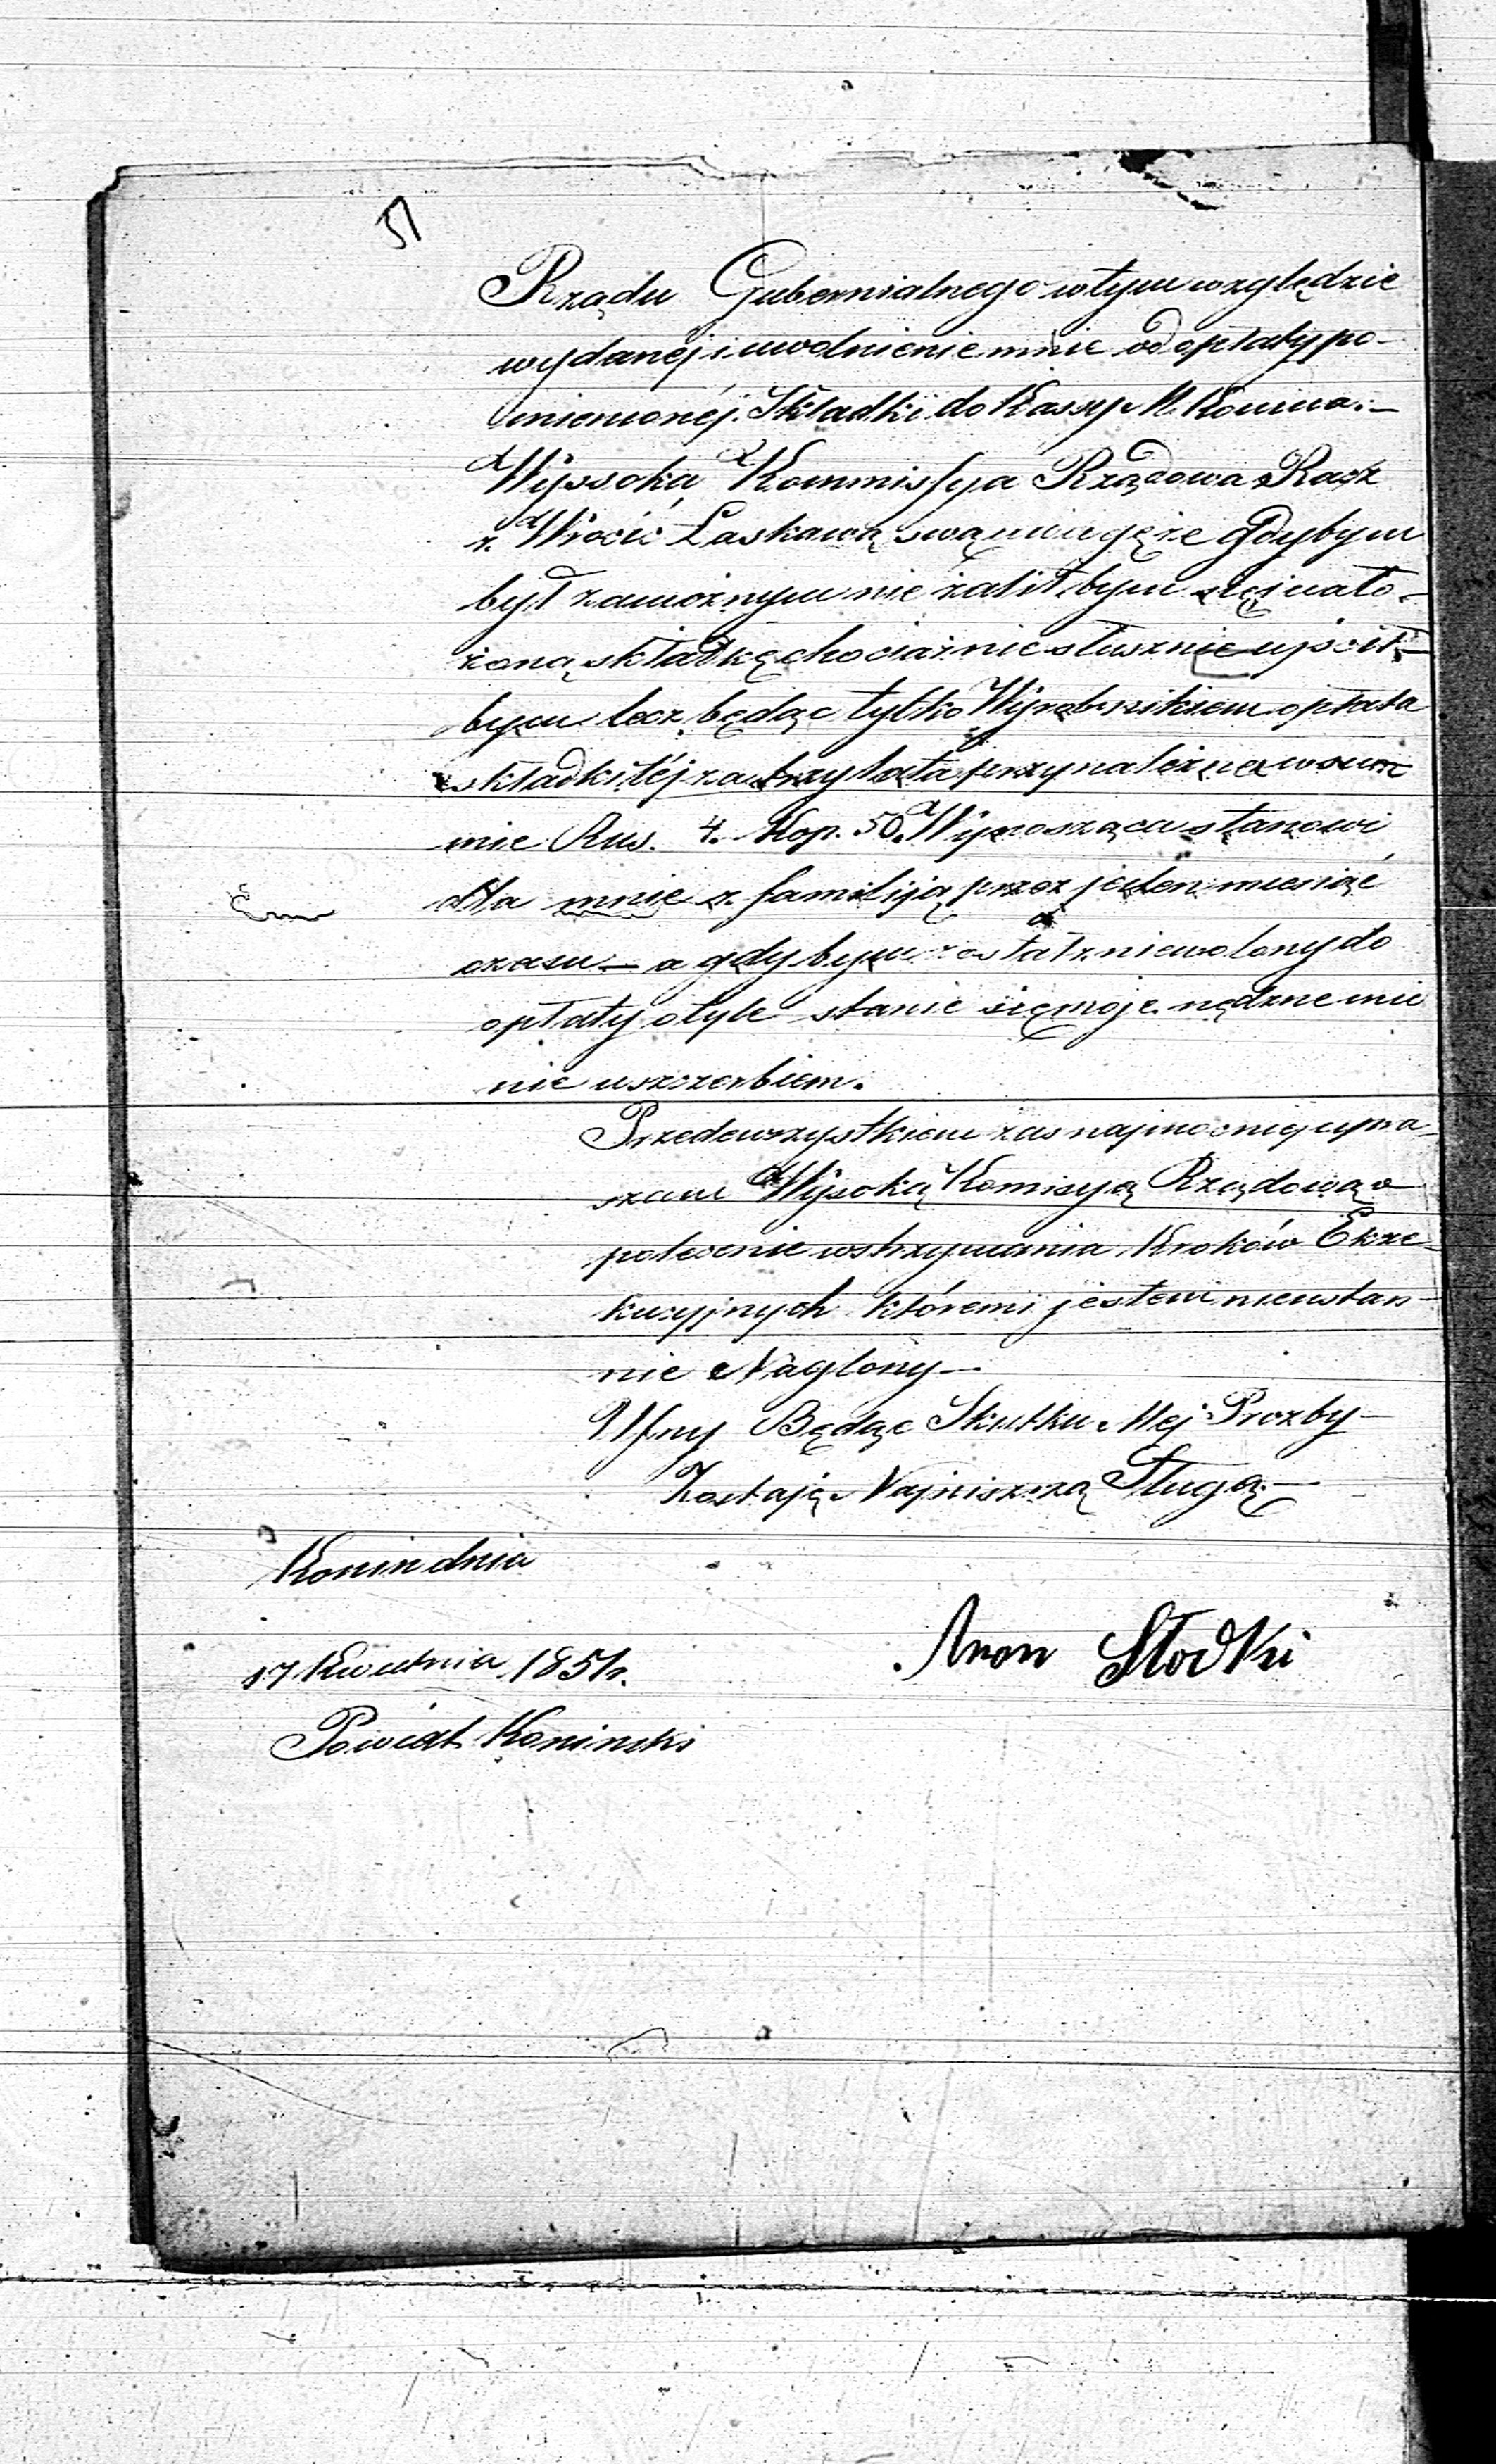 51
Rządu Gubernialnego w tym względzie
wydanéj i uwolnienie mnie od opłaty po-
mienionéj Składki do Kassy M. Konina.—
Wyssoka Kommissya Rządowa Racz
Zwrócić Łaskawą swą uwagę że gdybym
był zamożnym nie żalił bym się i nało-
żoną składkę chociaż nie słusznie ujścił-
bym lecz będąc tylko Wyrobnikiem opłata
składki téj za trzy lata przynależna w sum
mie Rus. 4. Kop. 50. Wynosząca stanowi
dla mnie z familiją przez jeden miesiąc
czasu — a gdybym został zniewolony do
opłaty o tyle stanie się moje nędzne mie
nie uszczerbiem.
Przedewszystkiem zas najmocniej upra-
szam Wysoką Komisyą Rządową o
polecenie wstrzymania Kroków Exze-
kucyjnych któremi jestem nieustan-
nie Naglony —
Ufny Będąc Skutku Mej Prozby —
Zostaję Najniszszą Sługą —
Konin dnia
17 Kwietnia 1851 r.
Aron Słodki
Powiat Koninski